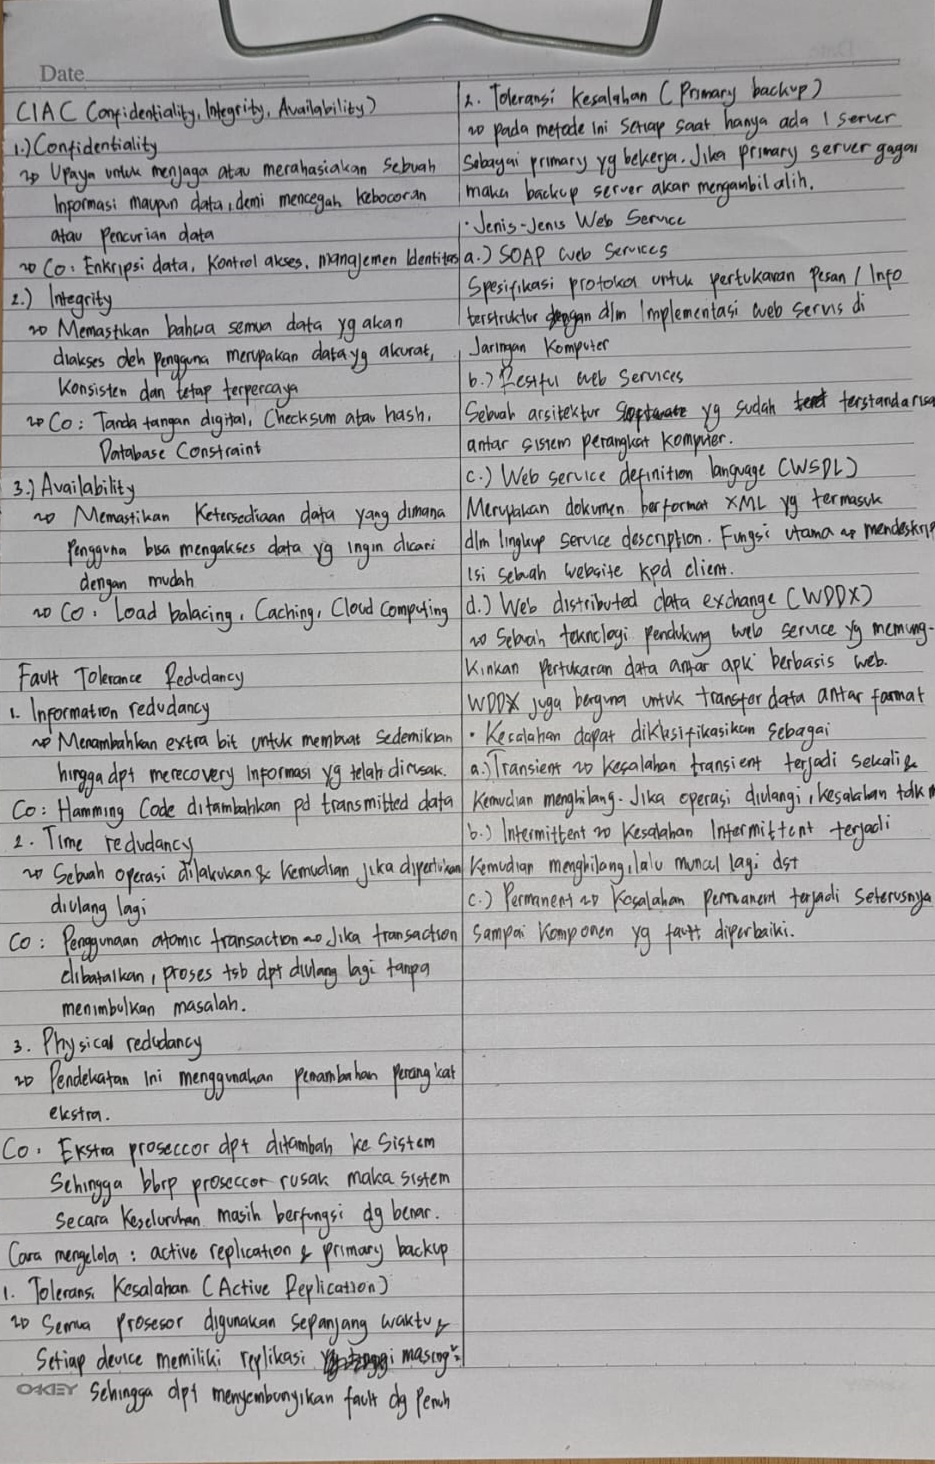 Date
CIAC Confidentiality, Integrity, Availability)
1.) Confidentiality
Upaya untuk menjaga atau merahasiakan sebuah
Informasi maupun data, demi mencegah kebocoran
atau pencurian data
Co: Enkripsi data, Kontrol akses, manajemen Identitas
2.) Integrity
Memastikan bahwa semua data yg akan
diakses oleh pengguna merupakan data yg akurat,
Konsisten dan tetap terpercaya
Co: Tanda tangan digital, Checksum atau hash,
Database Constraint
3.) Availability
Memastikan Ketersediaan data yang dimana
pengguna bisa mengakses data yg ingin dicari
dengan mudah
Co: Load balacing, Caching, Cloud Computing
Fault Tolerance Redudancy
1. Information redudancy
Menambahkan extra bit untuk membuat sedemikian
hingga dpt merecovery Informasi yg telah dirusak.
Co: Hamming Code ditambahkan pd transmitted data
2. Time redudancy
Sebuah operasi dilakukan & kemudian jika diperlukan
diulang lagi
Co: Penggunaan atomic transaction Jika transaction
dibatalkan, proses tsb dpt diulang lagi tanpa
menimbulkan masalah.
3. Physical redudancy
Pendekatan Ini menggunakan penambahan perangkat
ekstra.
Co: Ekstra proseccor dpt ditambah ke Sistem
Sehingga bbrp proseccor rusak maka sistem
secara Keseluruhan masih berfungsi dg benar.
Cara mengelola: active replication & primary backup
1. Toleransi Kesalahan (Active Replication)
Semua Prosesor digunakan sepanjang waktu &
Setiap device memiliki replikasi masing²
OKEY Sehingga dpt menyembunyikan fault dg Penuh
2. Toleransi Kesalahan (Primary backup)
pada metode Ini setiap saat hanya ada 1 server
Sebagai primary yg bekerja. Jika primary server gagal
maka backup server akan mengambil alih.
· Jenis-Jenis Web Service
a.) SOAP web Services
Spesifikasi protokol untuk pertukaran pesan / Info
terstruktur dlm Implementasi web servis di
Jaringan Komputer
b.) Restful web Services
Sebuah arsitektur yg sudah terstandarisa
antar sistem perangkat komputer.
c.) Web service definition language (WSDL)
Merupakan dokumen berformat XML yg termasuk
dlm lingkup service description. Fungsi utama mendeskrip
Isi sebuah website kpd client.
d.) Web distributed data exchange (WDDX)
Sebuah teknologi pendukung web service yg memung-
kinkan pertukaran data antar apk berbasis web.
WDDX juga berguna untuk transfer data antar format
· Kesalahan dapat diklasifikasikan sebagai
a.) Transient Kesalahan transient terjadi sekali &
Kemudian menghilang. Jika operasi diulangi, kesalahan tdk
b.) Intermittent Kesalahan Intermittent terjadi
Kemudian menghilang, lalu muncul lagi dst
c.) Permanent Kesalahan permanent terjadi seterusnya
sampai komponen yg fault diperbaiki.